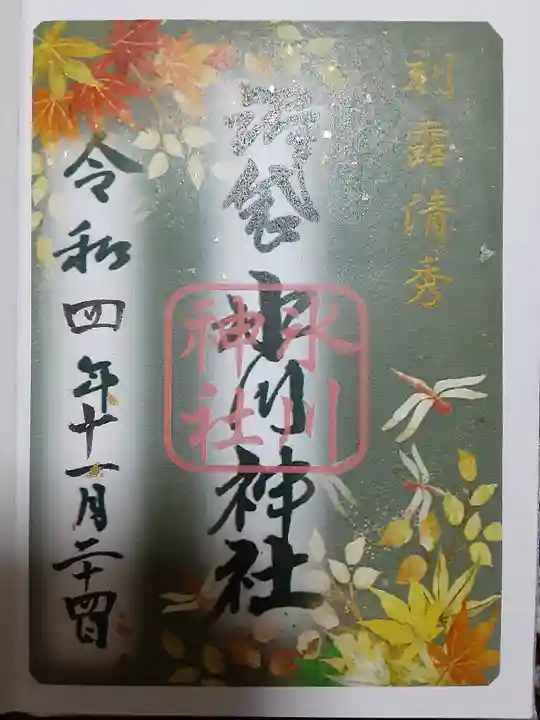 露清秀
袋氷川神社
氷川
神社
令和四年十一月二十四日